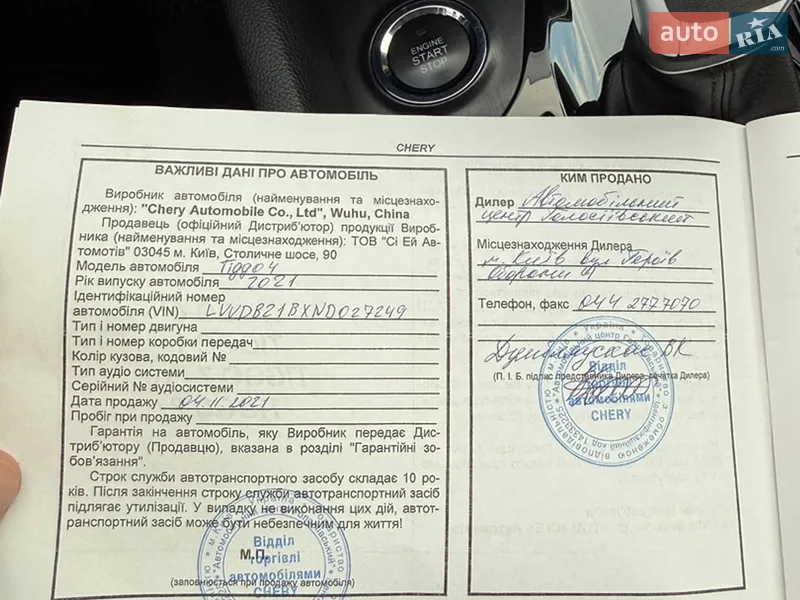 ENGINE
START
STOP
auto RIA
.com
CHERY
ВАЖЛИВІ ДАНІ ПРО АВТОМОБІЛЬ
Виробник автомобіля (найменування та місцезнахо-
дження): "Chery Automobile Co., Ltd", Wuhu, China
Продавець (офіційний Дистриб'ютор) продукції Вироб-
ника (найменування та місцезнаходження): ТОВ "Сі Ей Ав-
томотів" 03045 м. Київ, Столичне шосе, 90
Модель автомобіля Tiggo4
Рік випуску автомобіля 2021
Ідентифікаційний номер
автомобіля (VIN) LVVDB21BXND027249
Тип і номер двигуна
Тип і номер коробки передач
Колір кузова, кодовий №
Тип аудіо системи
Серійний № аудіосистеми
Дата продажу 04.11.2021
Пробіг при продажу
Гарантія на автомобіль, яку Виробник передає Дис-
триб'ютору (Продавцю), вказана в розділі "Гарантійні зо-
бов'язання".
Строк служби автотранспортного засобу складає 10 ро-
ків. Після закінчення строку служби автотранспортний засіб
підлягає утилізації. У випадку не виконання цих дій, авто-
транспортний засіб може бути небезпечним для життя!
М.П.
Відділ
торгівлі
автомобілями
CHERY
(заповнюється при продажу автомобіля)
КИМ ПРОДАНО
Дилер Автомобільний
центр Голосіївський
Місцезнаходження Дилера
м. Київ вул Героїв
Оборони
Телефон, факс 044 2777070
ВК
(П. І. Б. підпис представника Дилера, печатка Дилера)
Україна
Відділ
торгівлі
автомобілями
CHERY